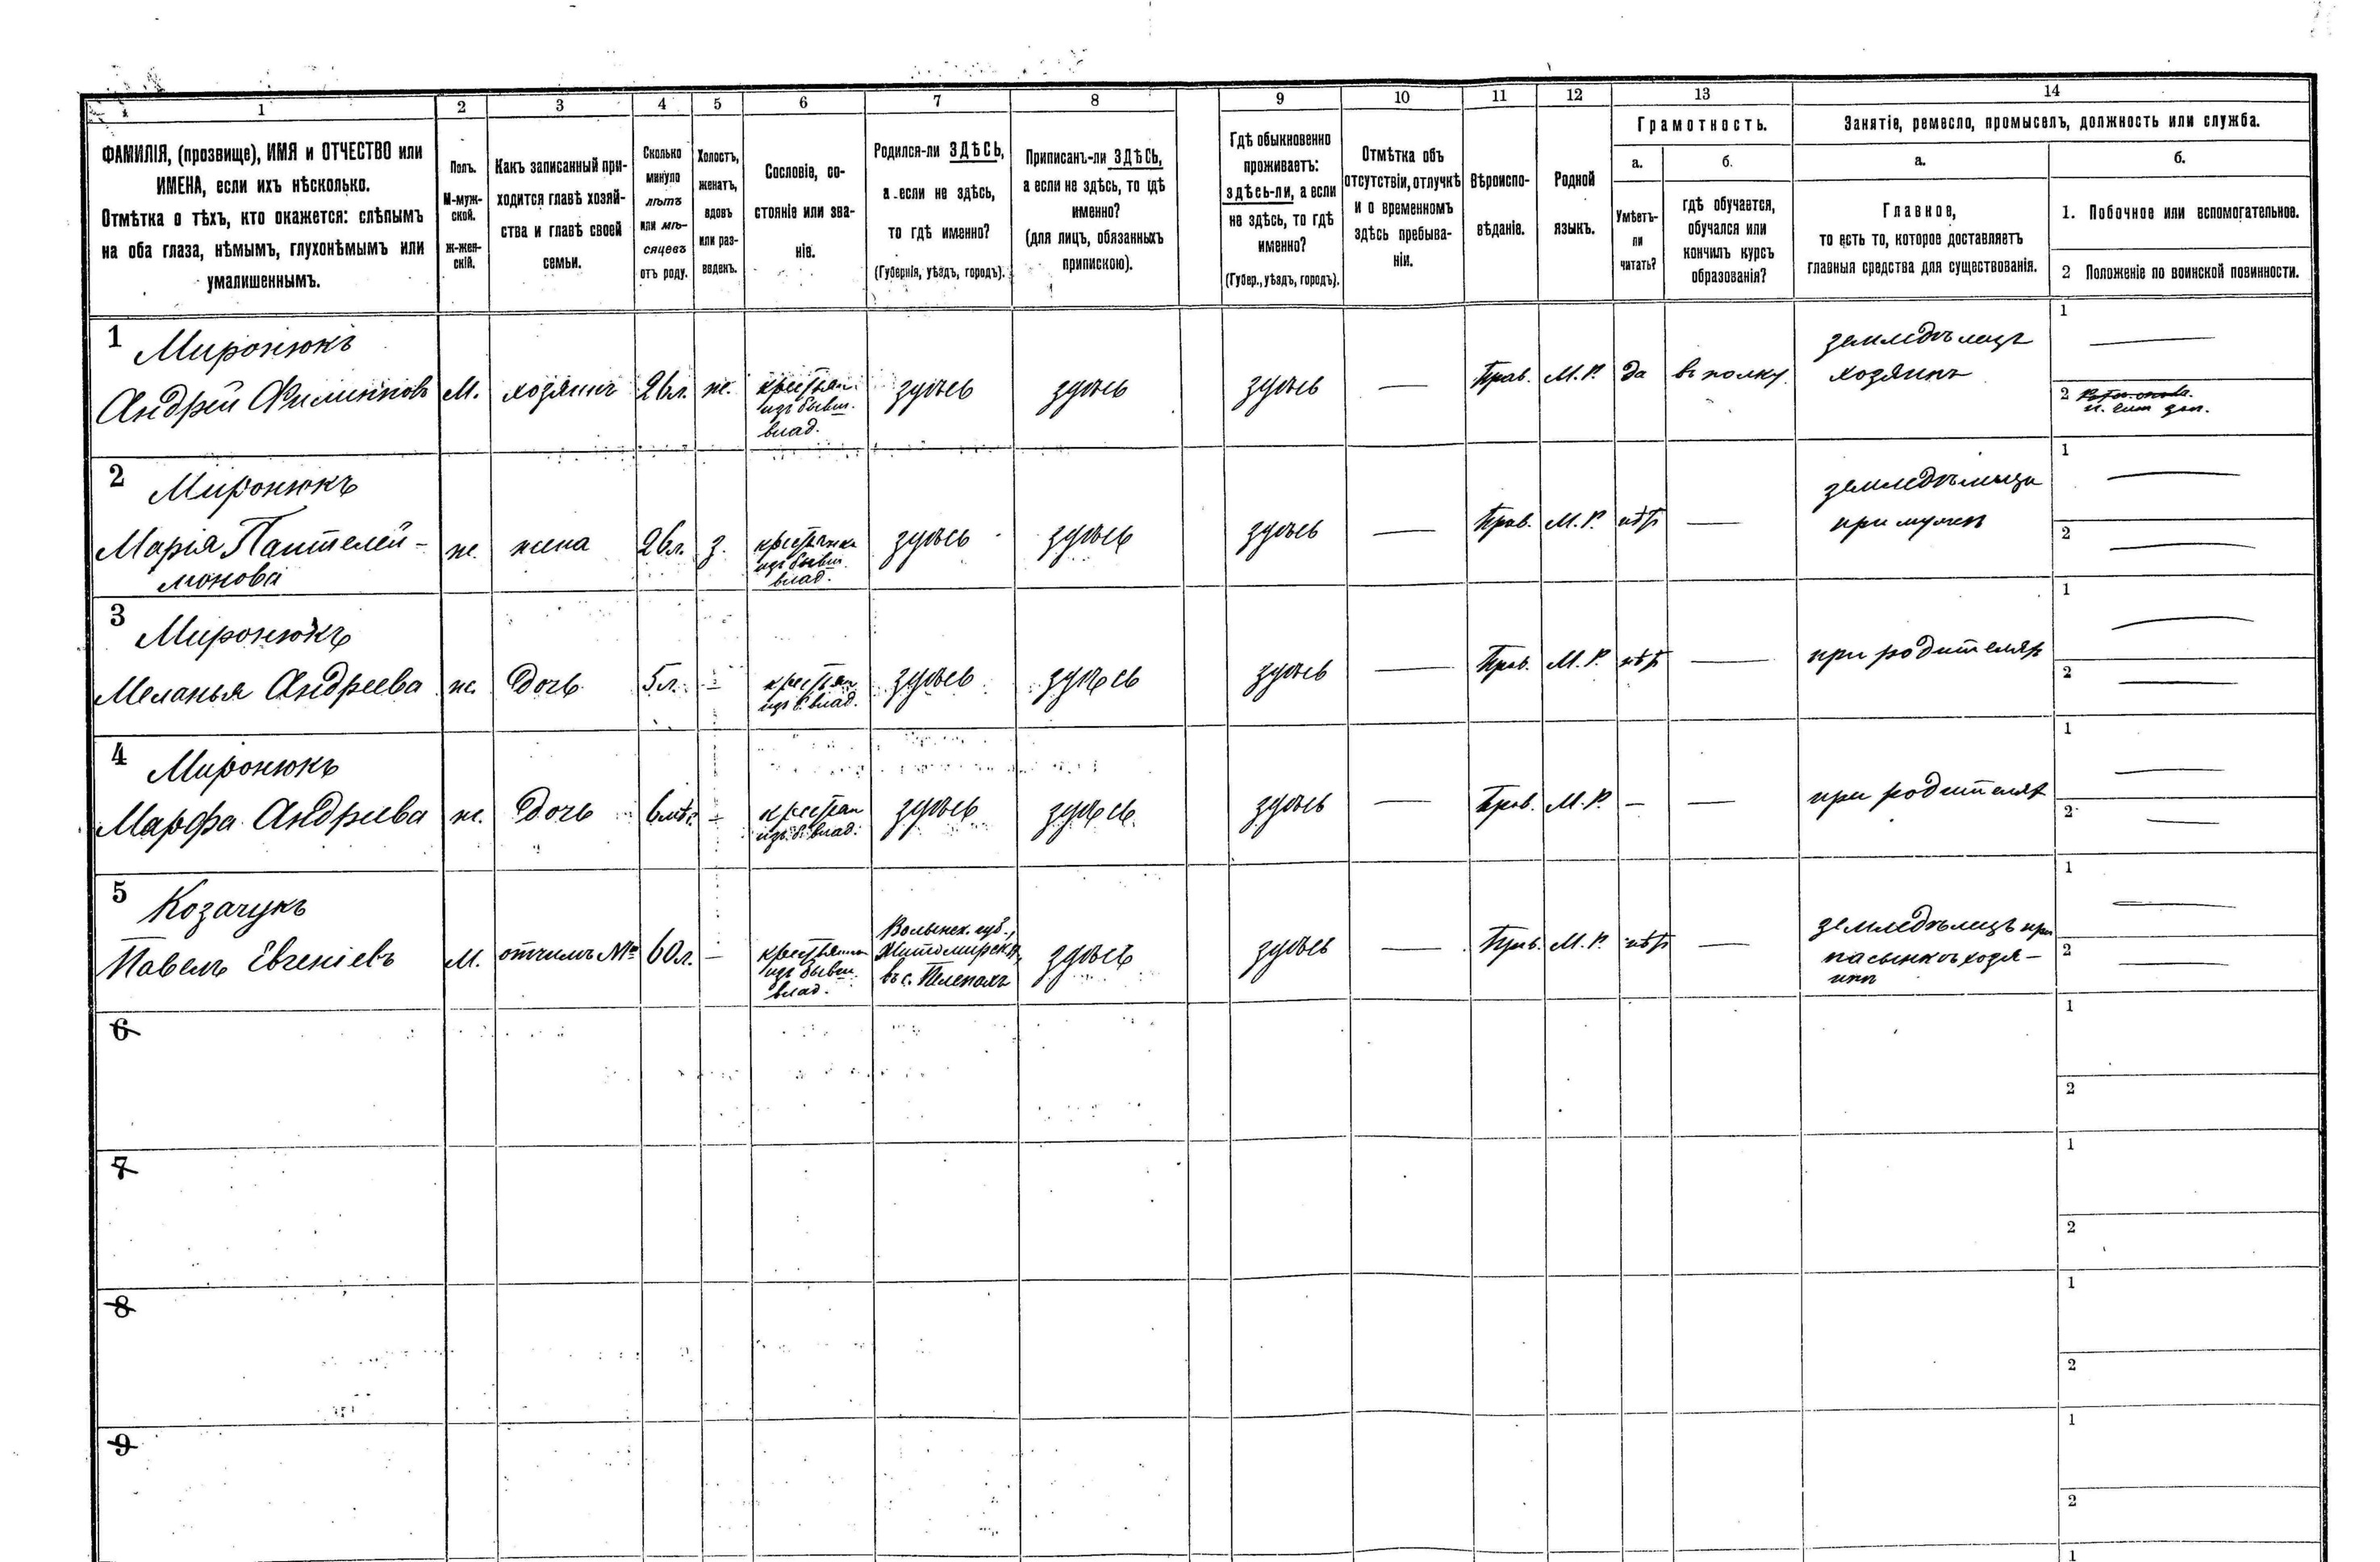 1
2
3
4
5
6
7
8
9
10
11
12
13
14
ФАМИЛІЯ, (прозвище), ИМЯ и ОТЧЕСТВО или
ИМЕНА, если ихъ нѣсколько.
Отмѣтка о тѣхъ, кто окажется: слѣпымъ
на оба глаза, нѣмымъ, глухонѣмымъ или
умалишеннымъ.
Полъ.
М-муж-
ской.
ж-жен-
скій.
Какъ записанный при-
ходится главѣ хозяй-
ства и главѣ своей
семьи.
Сколько
минуло
лѣтъ
или мѣ-
сяцевъ
отъ роду.
Холостъ,
женатъ,
вдовъ
или раз-
веденъ.
Сословіе, со-
стояніе или зва-
ніе.
Родился-ли ЗДѢСЬ,
а если не здѣсь,
то гдѣ именно?
(Губернія, уѣздъ, городъ).
Приписанъ-ли ЗДѢСЬ,
а если не здѣсь, то гдѣ
именно?
(для лицъ, обязанныхъ
припискою).
Гдѣ обыкновенно
проживаетъ:
здѣсь-ли, а если
не здѣсь, то гдѣ
именно?
(Губер., уѣздъ, городъ).
Отмѣтка объ
отсутствіи, отлучкѣ
и о временномъ
здѣсь пребыва-
ніи.
Вѣроиспо-
вѣданіе.
Родной
языкъ.
Грамотность.
а.
Умѣетъ-
ли
читать?
б.
гдѣ обучается,
обучался или
кончилъ курсъ
образованія?
Занятіе, ремесло, промыселъ, должность или служба.
а.
Главное,
то есть то, которое доставляетъ
главныя средства для существованія.
б.
1. Побочное или вспомогательное.
2 Положеніе по воинской повинности.
1 Миронюкъ
Андрей Филипповъ
М.
хозяинъ
26 л.
ж.
крестьян
изъ бывш.
влад.
здѣсь
здѣсь
здѣсь
—
Прав.
М. Р.
да
въ полку
земледѣлецъ
хозяинъ
1 —
2
2 Миронюкъ
Марія Пантелей-
монова
ж.
жена
26 л.
з.
крестьянка
изъ бывш.
влад.
здѣсь
здѣсь
здѣсь
—
Прав.
М. Р.
нѣт
—
земледѣлица
при мужѣ
1 —
2 —
3 Миронюкъ
Меланья Андреева
ж.
дочь
5 л.
—
крестьян
изъ б. влад.
здѣсь
здѣсь
здѣсь
—
Прав.
М. Р.
нѣт
—
при родителях
1 —
2 —
4 Миронюкъ
Марфа Андреева
ж.
дочь
6 мѣс.
—
крестьян
изъ б. влад.
здѣсь
здѣсь
здѣсь
—
Прав.
М. Р.
—
—
при родителях
1 —
2 —
5 Козачукъ
Павелъ Евгеніевъ
М.
отчимъ №1
60 л.
—
крестьянин
изъ бывш.
влад.
Волынск. губ.,
Житомирск. у.,
въ с.
здѣсь
здѣсь
—
Прав.
М. Р.
нѣт
—
земледѣлецъ при
пасынкѣ хозя-
инѣ
1 —
2 —
6
1
2
7
1
2
8
1
2
9
1
2
1